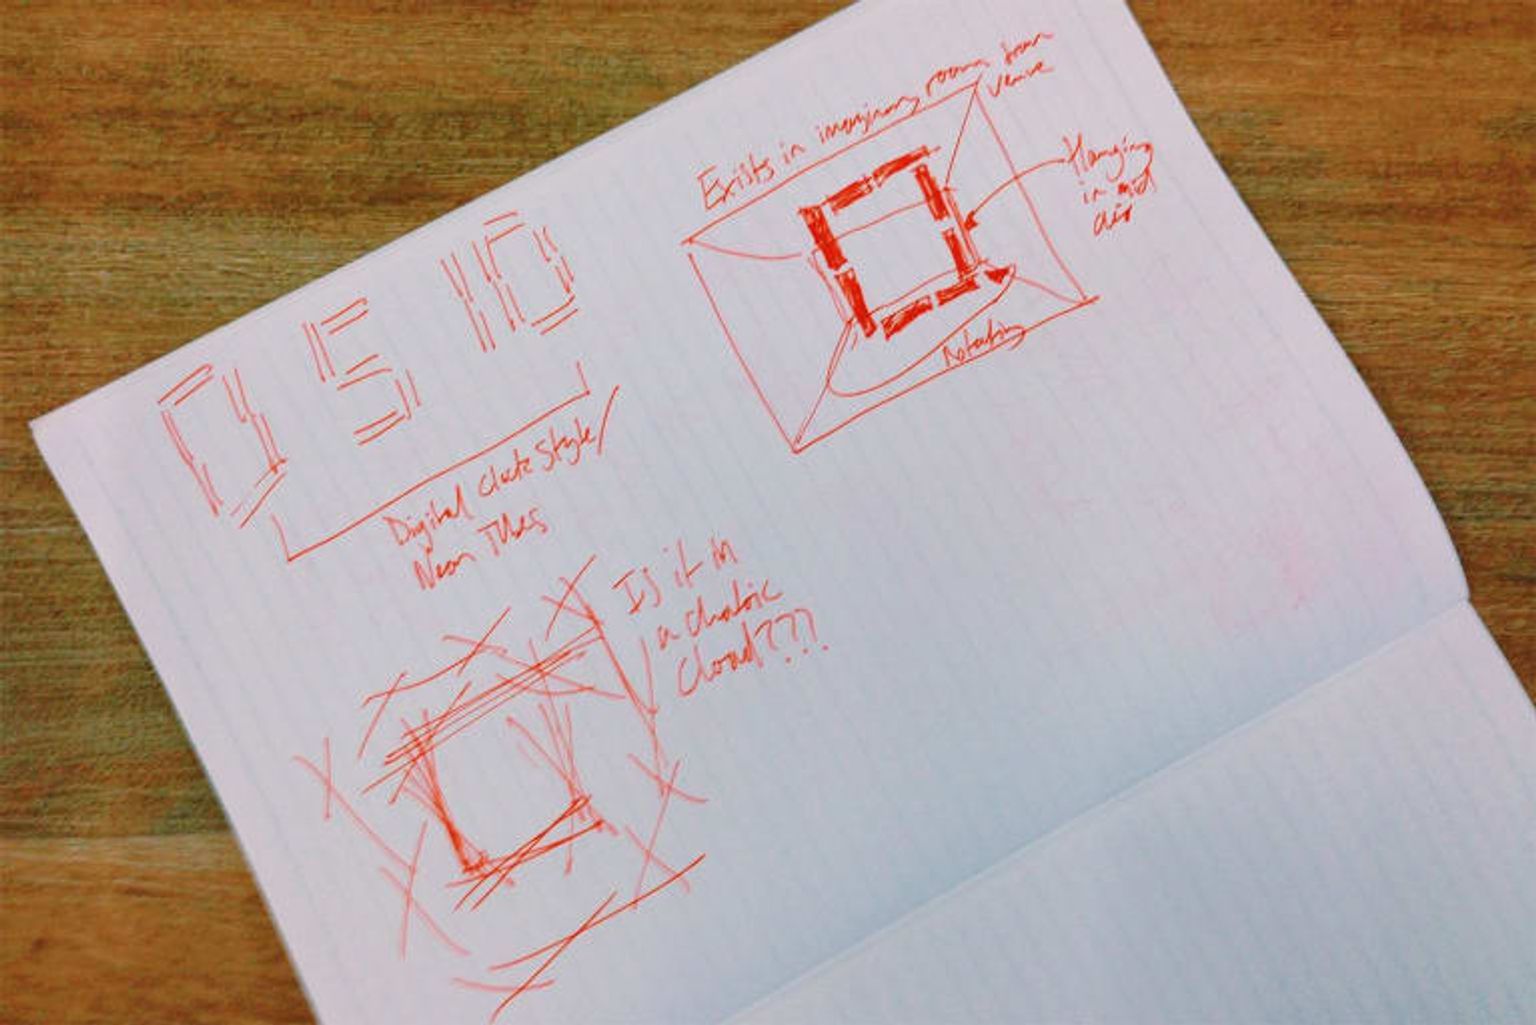 Exists in imaginary room from
venue
Hanging
in mid
air
Rotating
0 5 10
Digital Clock Style/
Neon Tubes
Is it in
a chaotic
cloud???